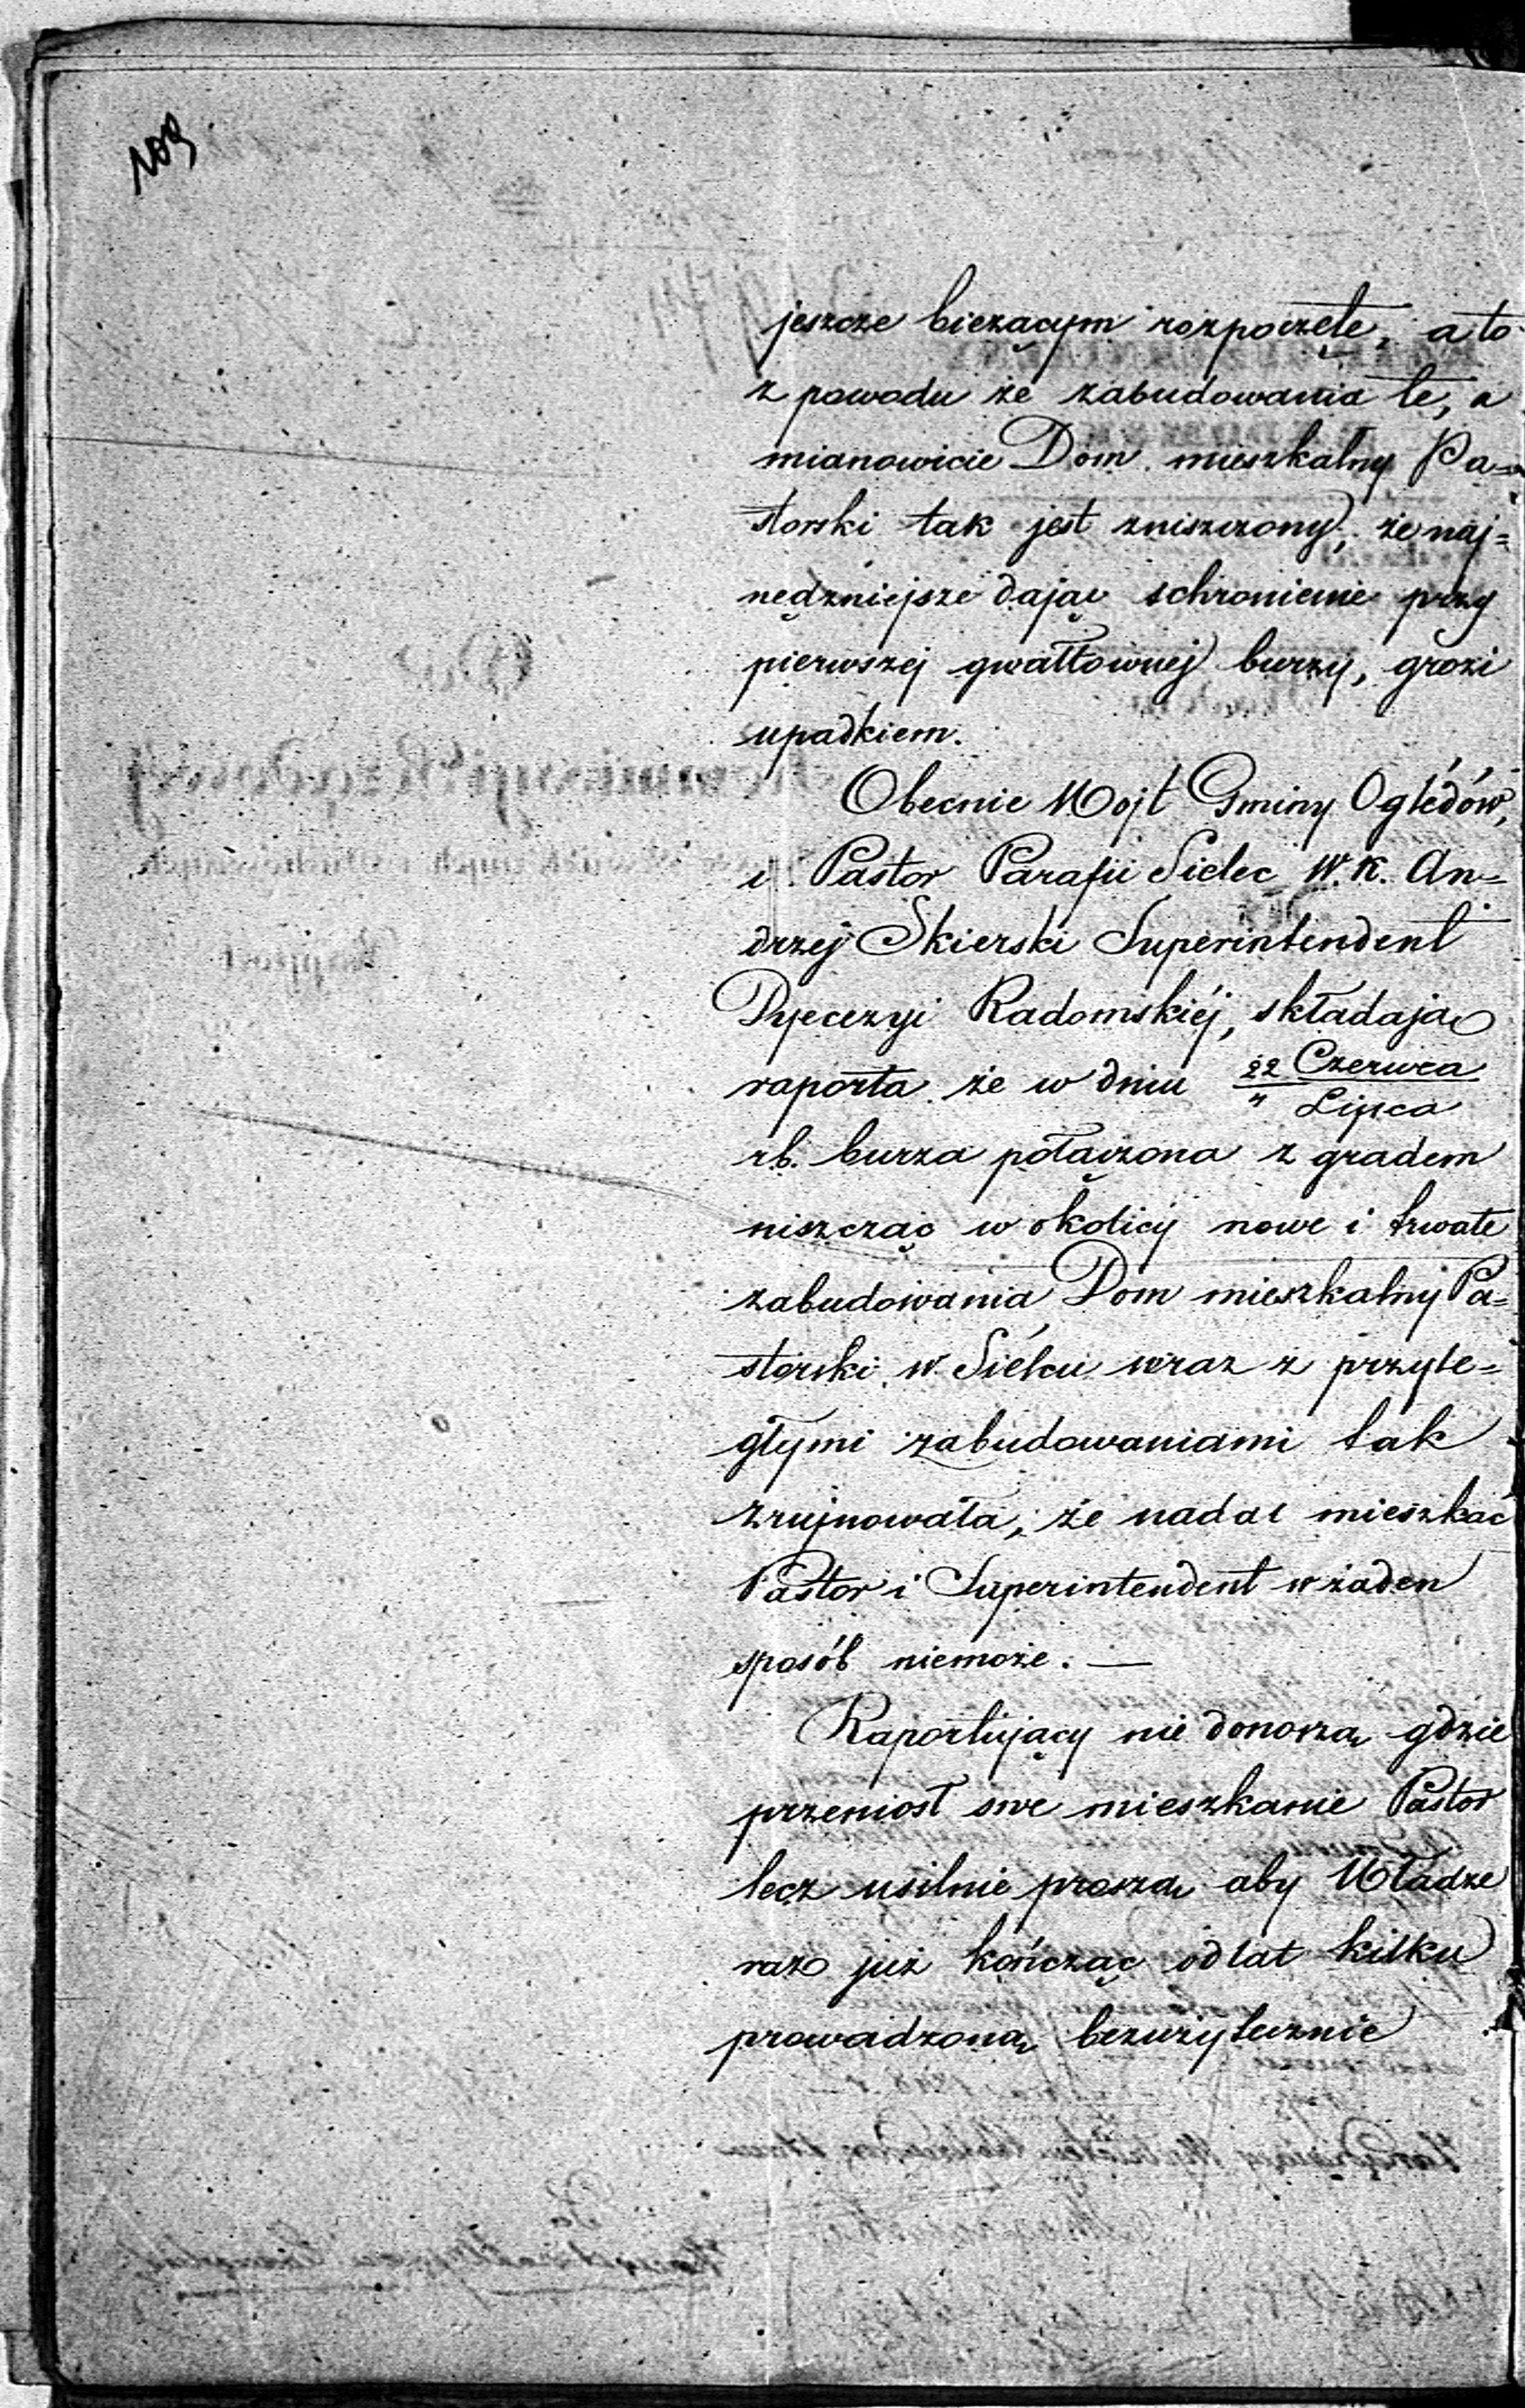 109
jeszcze bieżącym rozpoczęte, a to
z powodu że zabudowania te, a
mianowicie Dom mieszkalny Pa=
storski tak jest zniszczony, że naj=
nędzniejsze dając schronienie przy
pierwszej gwałtownej burzy, grozi
upadkiem.
Obecnie Wojt Gminy Oględów,
i Pastor Parafii Sielec W. K. An=
drzej Skierski Superintendent
Dyecezyi Radomskiéj, składają
raporta że w dniu 22 Czerwca / 4 Lipca
rb. burza połączona z gradem
niszcząc w okolicy nowe i trwałe
zabudowania Dom mieszkalny Pa=
storski w Siélcu wraz z przyle=
głymi zabudowaniami tak
zrujnowała, że nadal mieszkać
Pastor i Superintendent w żaden
sposób niemoże. —
Raportujący nie donoszą gdzie
przeniosł swe mieszkanie Pastor
lecz usilnie proszą aby Władze
raz już kończąc od lat kilku
prowadzoną bezużytecznie